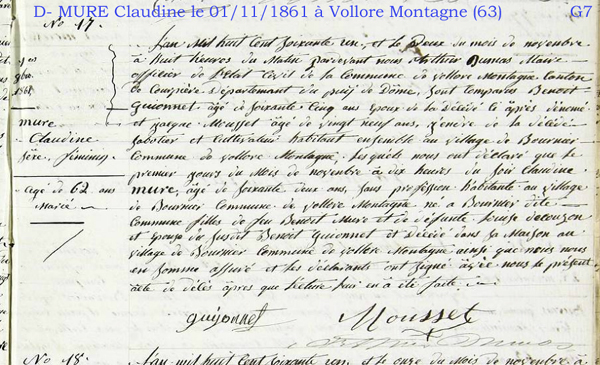 D- MURE Claudine le 01/11/1861 à Vollore Montagne (63) G7
No 17.
L'an mil huit cent soixante un, et le Deux du mois de novembre
à huit heures du Matin pardevant nous Arthur Dumas Maire
officier de l'état Civil de la Commune de vollore Montagne Canton
de Courpière Département du puy de Dome, sont Comparus Benoit
guionnet, âgé de soixante Cinq ans Epoux de la Décédé Ci après
et Mousset âgé de vingt neuf ans, de la Décédé
Sabotier et Cultivateur habitant ensemble au village de Bournier
Commune de vollore Montagne, Lesquels nous ont déclaré que le
premier jours du Mois de novembre à dix heures du Soir Claudine
mure, âgé de soixante deux ans, sans profession habitante au village
de Bournier Commune de vollore Montagne né a Bournier dite
Commune filles de feu Benoit Mure et de défunte
et Epouze de susdit Benoit Guionnet et Décédé dans sa Maison au
village de Bournier Commune de vollore Montagne ainsi que nous nous
en somme assuré et les déclarants ont signé avec nous le présent
acte de décès après que lecture lui en a été faite
mure
Claudine
sexe féminin
agé de 62 ans
Marié
guyonnet Mousset
No 18.
L'an mil huit Cent soixante un et le onze du Mois de novembre à